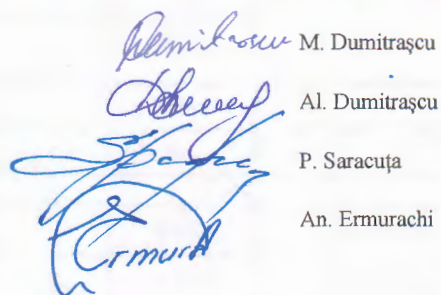 Dumitrascu M. Dumitrașcu
Al. Dumitrașcu
P. Saracuța
Ermura An. Ermurachi